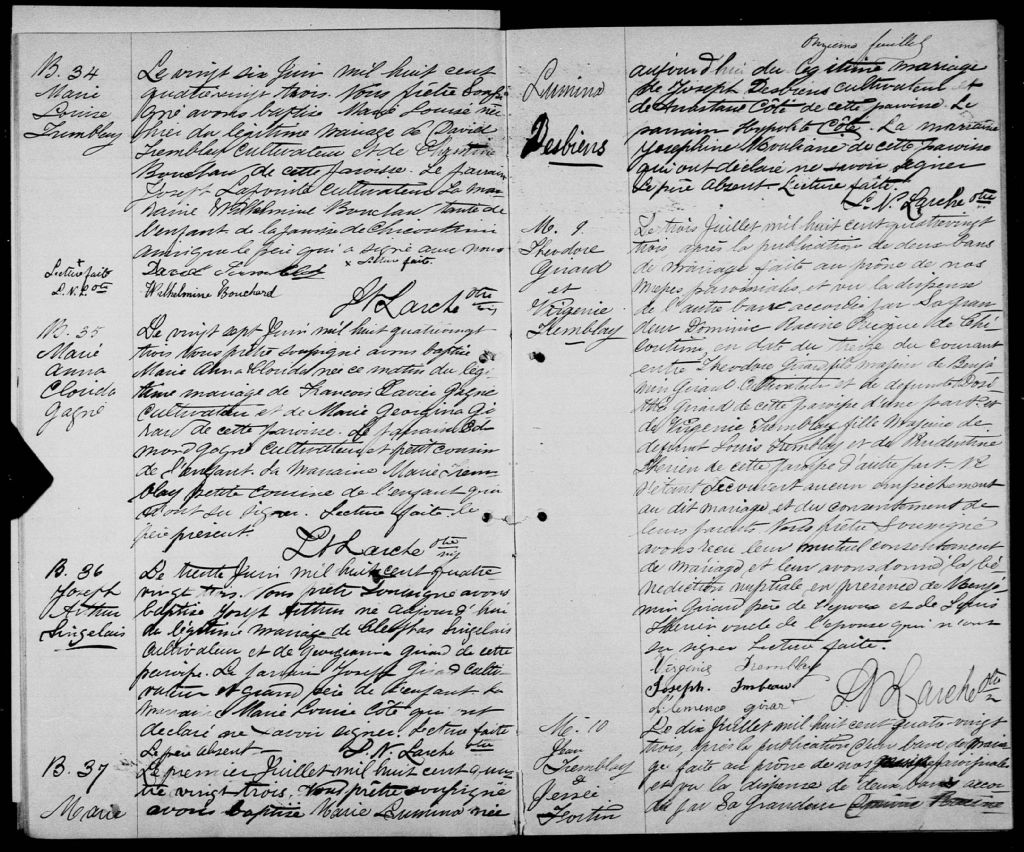 B. 34
Marie
Louise
Tremblay
Le vingt six Juin mil huit cent
quatrevingt trois. Nous prêtre sousi-
gné avons baptisé Marie Louise née
du légitime mariage de David
Tremblay cultivateur et de Christine
Bouchau de cette paroisse. Le parrain
Joseph Laforme cultivateur La mar-
raine Wilhelmine Bouchau tante de
l'enfant de la paroisse de Chicoutimi
ainsi que le père qui a signé avec nous
x Lecture faite.
Lecture faite
L. N. L. ptre
David Tremblay
Wilhelmine Bouchard
L N Larche ptre
B. 35
Marie
Anna
Clorida
Gagné
Le vingt sept Juin mil huit quatrevingt
trois Nous prêtre soussigné avons baptisé
Marie Anna Clorida née ce matin du légi-
time mariage de François Xavier Gagné
cultivateur et de Marie Georgina Gi-
rard de cette paroisse. Le parrain Ed-
mond Gagné cultivateur et petit cousin
de l'enfant. La marraine Marie Trem-
blay petite cousine de l'enfant qui
n'ont su signer. Lecture faite. le
père présent.
L N Larche ptre
B. 36
Joseph
Arthur
Singelais
Le trente Juin mil huit cent quatre
vingt trois. Nous prêtre soussigné avons
baptisé Joseph Arthur né aujourd'hui
du légitime mariage de Cleophas Singelais
cultivateur et de Georgeanna Girard de cette
paroisse. Le parrain Joseph Girard culti-
vateur et grand père de l'enfant La
marraine Marie Louise Côté qui ont
déclaré ne savoir signer. Lecture faite
Le père absent —
L. N. Larche ptre
B. 37
Marie
Le premier Juillet mil huit cent qua-
tre vingt trois. Nous prêtre soussigné
avons baptisé Marie Lumina née
Onzieme feuillet
Lumina
Desbiens
aujourd'hui du légitime mariage
de Joseph Desbiens cultivateur et
de Anastasie Côté de cette paroisse. Le
parrain Hypolite Côté. La marraine
Josephine de cette paroisse
qui ont déclaré ne savoir signer
Le père absent Lecture faite.
L. N. Larche ptre
M. 9
Theodore
Girard
et
Virginie
Tremblay
Le trois Juillet mil huit cent quatrevingt
trois après la publication de deux bans
de mariage faite au prône de nos
messes paroissiales et vu la dispense
de l'autre banc accordée par Sa Gran
deur Dominic Racine Evêque de Chi-
coutimi, en date du treize du courant
entre Theodore Girard fils majeur de Benja
min Girard Cultivateur et de defunte José
Girard de cette paroisse d'une part. et
de Virginie Tremblay fille Majeure de
defunt Louis Tremblay et de Prudentine
Therien de cette paroisse d'autre part. Ne
s'étant découvert aucun empêchement
au dit mariage et du consentement de
leurs parents Nous prêtre soussigné
avons recu leur mutuel consentement
de mariage et leur avons donné la bé-
nediction nuptiale en présence de Benja
min Girard père de l'epoux et de Louis
Therien oncle de l'épouse qui n'ont
su signer Lecture faite.
Virginie Tremblay
Joseph. Imbeau
Clémence girar
L N Larche ptre
M. 10
Jean
Tremblay
&
Jessé
Fortin
Le dix Juillet mil huit cent quatre-vingt
trois, après la publication d'un banc de maria
ge faite au prône de nos paroissiale
et vu la dispense de deux bans accor
dé par Sa Grandeur Dominic Racine